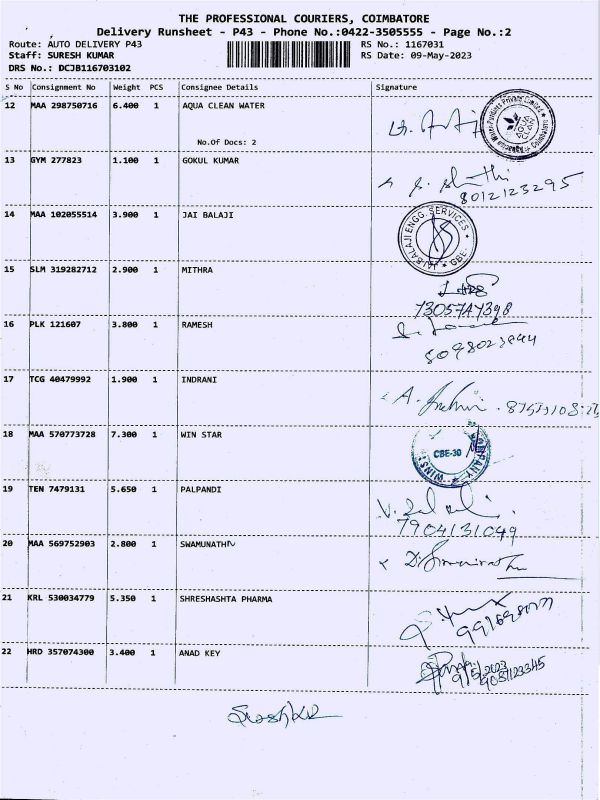 THE PROFESSIONAL COURIERS, COIMBATORE
Delivery Runsheet - P43 - Phone No.:0422-3505555 - Page No.:2
Route: AUTO DELIVERY P43 RS No.: 1167031
Staff: SURESH KUMAR RS Date: 09-May-2023
DRS No.: DCJB116703102
S No Consignment No Weight PCS Consignee Details Signature
12 MAA 298750716 6.400 1 AQUA CLEAN WATER
No.Of Docs: 2
13 GYM 277823 1.100 1 GOKUL KUMAR
8012123295
14 MAA 102055514 3.900 1 JAI BALAJI
JAI BALAJI ENGG. SERVICES CBE
15 SLM 319282712 2.900 1 MITHRA
16 PLK 121607 3.800 1 RAMESH
17 TCG 40479992 1.900 1 INDRANI
18 MAA 570773728 7.300 1 WIN STAR
CBE-30
19 TEN 7479131 5.650 1 PALPANDI
7904131049
20 MAA 569752903 2.800 1 SWAMUNATHN
21 KRL 530034779 5.350 1 SHRESHASHTA PHARMA
22 HRD 357074300 3.400 1 ANAD KEY
9/5/2023